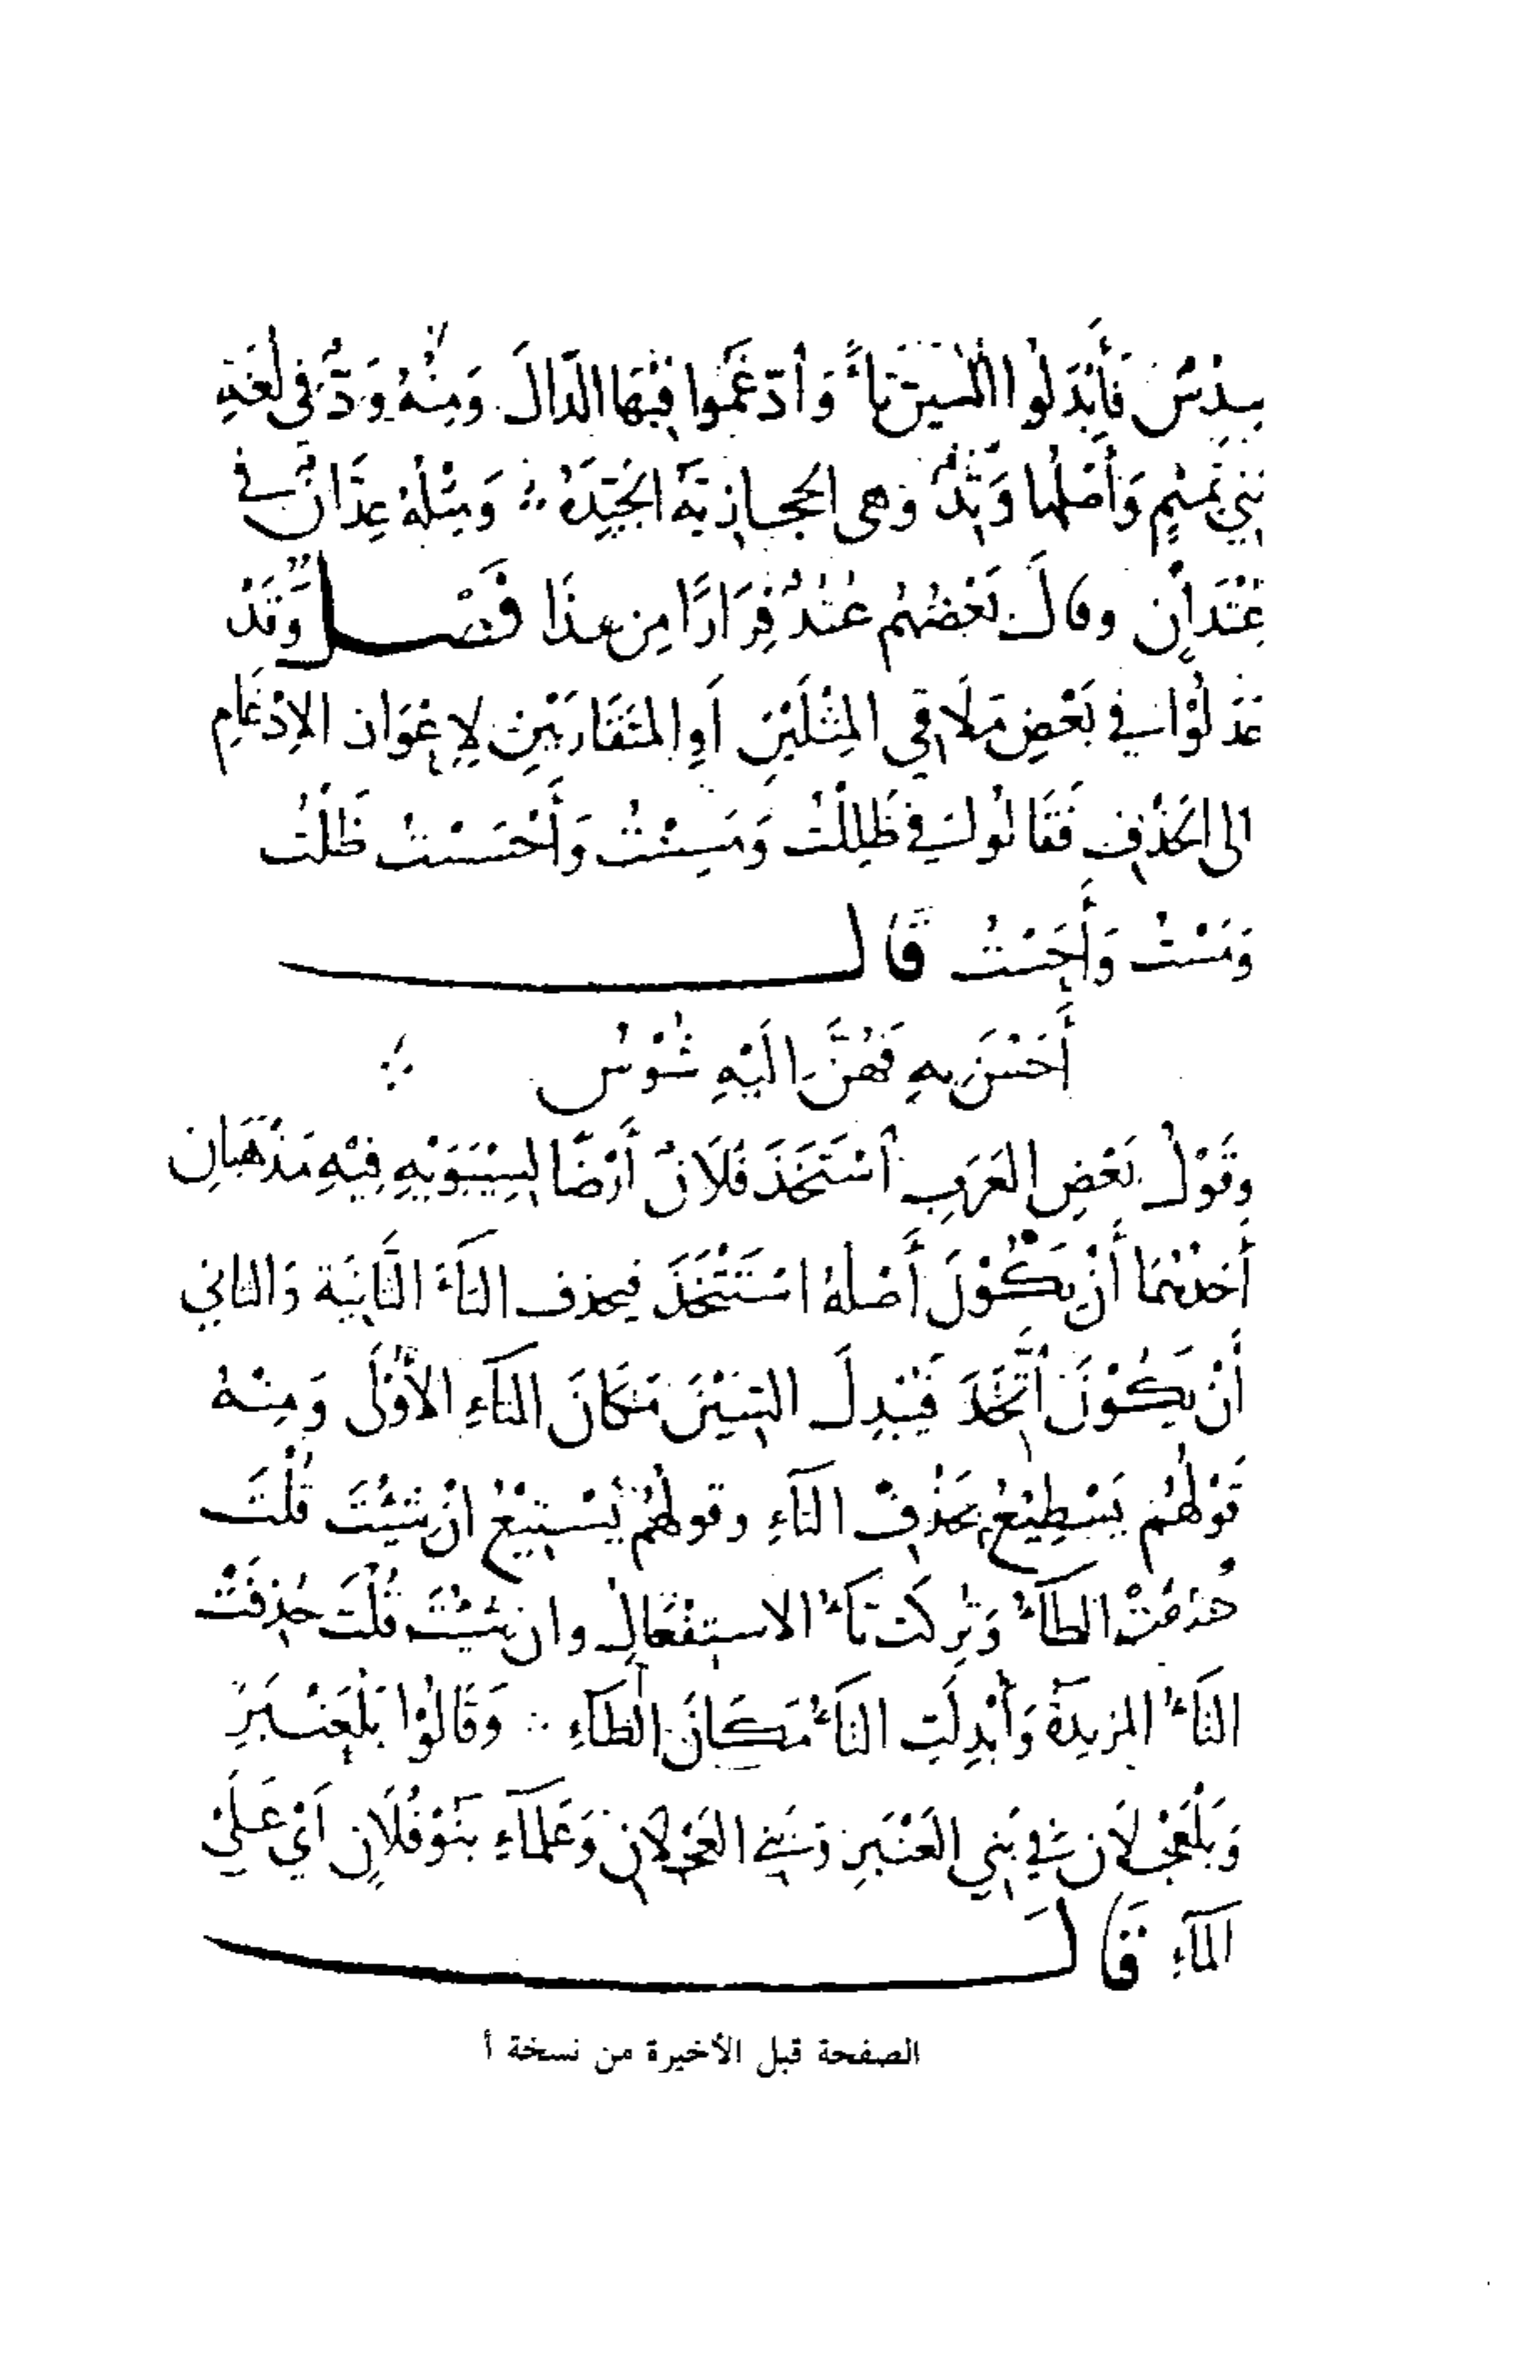 سِدْسٌ فَأَبْدَلُوا السِّينَ تَاءً وَأَدْغَمُوا فِيْهَا الدَّالَ وَمِنْهُ وَدٌّ فى لُغَةِ
بَنِي تَمِيْمٍ وَأَصْلُهَا وَتِدٌ وهى الحجازِيَّةُ الجَيِّدَةُ وَمِثْلُهُ عِدَّانٌ فِي
عِتْدَانٍ وقالَ بَعْضُهُم عُتُدٌ فِرَارًا مِن هذَا فَصْلٌ وَقَدْ
عَدَلُوْا فِي بَعْضِ مَلَاقِي المِثْلَيْنِ أَوِ المُتَقَارِبَيْنِ لِإِعْوَازِ الإِدْغَامِ
الى الحَذْفِ فَقَالُوا فِي ظَلِلْتُ وَمَسِسْتُ وَأَحْسَسْتُ ظَلْتُ
وَمَسْتُ وَأَحَسْتُ قَالَ
أَحَسْنَ بِهِ فَهُنَّ إِلَيْهِ شُوْسُ
وقَوْلُ بَعْضِ العَرَبِ اسْتَخَذَ فُلَانٌ أَرْضًا لِسِيْبَوَيْهِ فِيْهِ مَذْهَبَانِ
أَحَدُهُمَا أَنْ يَكُوْنَ أَصْلُهُ اسْتَتْخَذَ فيحذف التَّاءَ الثَّانِيَة وَالثاني
أَنْ يَكُوْنَ اتَّخَذَ فَيُبْدِلَ السِّيْنَ مَكَانَ التَّاءِ الأُوْلَى وَمِنْهُ
قَوْلُهُم يَسْطِيْعُ بِحَذْفِ التَّاءِ وقولُهُمْ يَسْتِيْعُ انْ شِئْتَ قُلْتَ
حُذِفَتْ الطَّاءُ وَتُرِكَتْ تَاءُ الاستِفْعَالِ وان شِئْتَ قُلْتَ حُذِفَتْ
التَّاءُ المزيدَةُ وَأُبْدِلَتِ التَّاءُ مَكَانَ الطَّاءِ وَقَالُوْا بَلْعَنْبَرِ
وَبَلْعَجْلَانِ فِي بَنِي العَنْبَرِ وَبَنِي العَجْلَانِ وَعَلْمَاءِ بَنُوْ فُلَانٍ أَيْ عَلَى
المَاءِ قَالَ
الصفحة قبل الأخيرة من نسخة أ